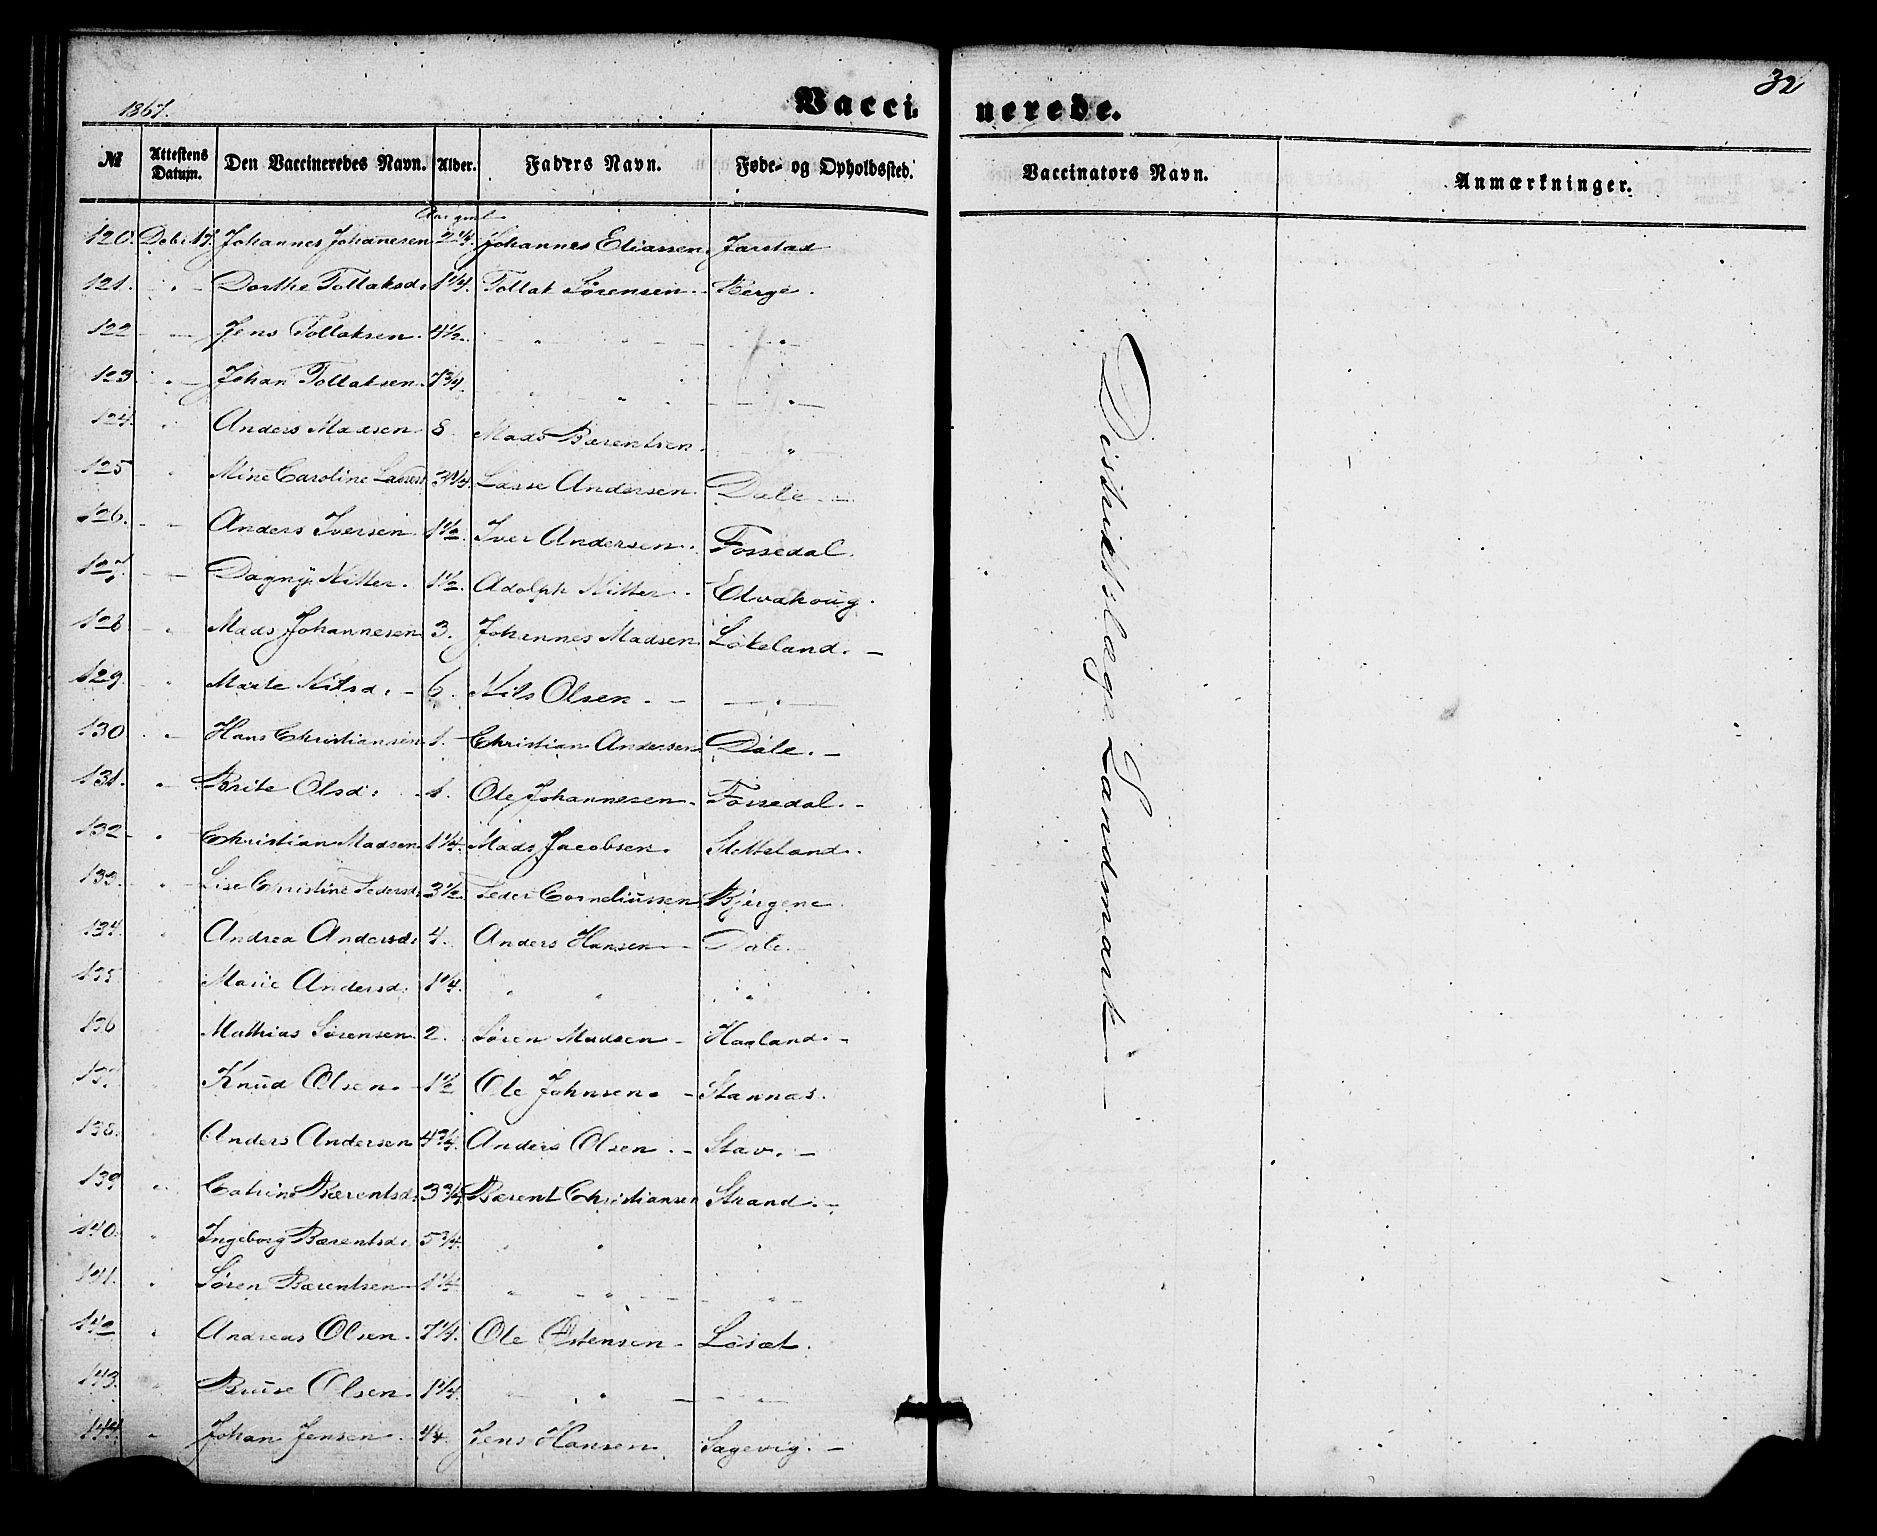 32
1867.
Vaccinerede.
№ Attestens Datum. Den Vaccineredes Navn. Alder. Faders Navn. Føde- og Opholdssted. Vaccinators Navn. Anmærkninger.
Aar gml
120. Debr 17. Johannes Johanesen 2 1/4. Johannes Eliassen. Jarstad
121. " - Dorthe Tollaksd. 1 1/4. Tollak Sørensen. - Berge.
122 - - Jens Tollaksen. 4 1/2. - " " - - " -
123 " - Johan Tollaksen. 7 3/4. " " - " -
124. " Anders Madsen 8. Mads Bærentsen. "
125 " Mine Caroline Lassesd 3 1/4. Lasse Andersen. Dale. -
126. - - Anders Iversen. 1 1/2. Iver Andersen. Fossedal.
127. - - Dagny Nitter. 1 1/2. Adolph Nitter. Elvakoug.
128 - " Mads Johannesen 3. Johannes Madsen Løkeland. -
129. - " Marte Nilsd. - 6. Nils Olsen. - - " -
130. " - Hans Christiansen. 1. Christian Andersen. Dale. -
131. " - Brite Olsd: - 1. Ole Johannesen. Fossedal. -
132 - " Christian Madsen. 1 1/4. Mads Jacobsen. Sletteland.
133. " - Lise Christine Pedersd. 3 1/2. Peder Corneliussen Bjergene.
134. " Andrea Andersd: 4. Anders Hansen - Dale.
135 Marie Andersd. 1 1/4. " " "
136 Mathias Sørensen. 2. Søren Madsen - Haaland. -
137 Knud Olsen. - 1 1/2 Ole Johnsen. - Stannas.
138. Anders Andersen 4 3/4. Anders Olsen. - Stav. -
139 " Catrine Bærentsd. 3 3/4. Bærent Christiansen Strand. -
140. " Ingeborg Bærentsd. 5 3/4. " " "
141. " Søren Bærentsen 1 1/4 " - " - - - " -
142 " Andreas Olsen. 7 1/4. Ole Østensen - Løsæt.
143. " Olsen. 1 1/4. - " - - " -
144. " Johan Jensen. 1/4. Jens Hansen Sagevig. -
Distriktslæge Landmark -